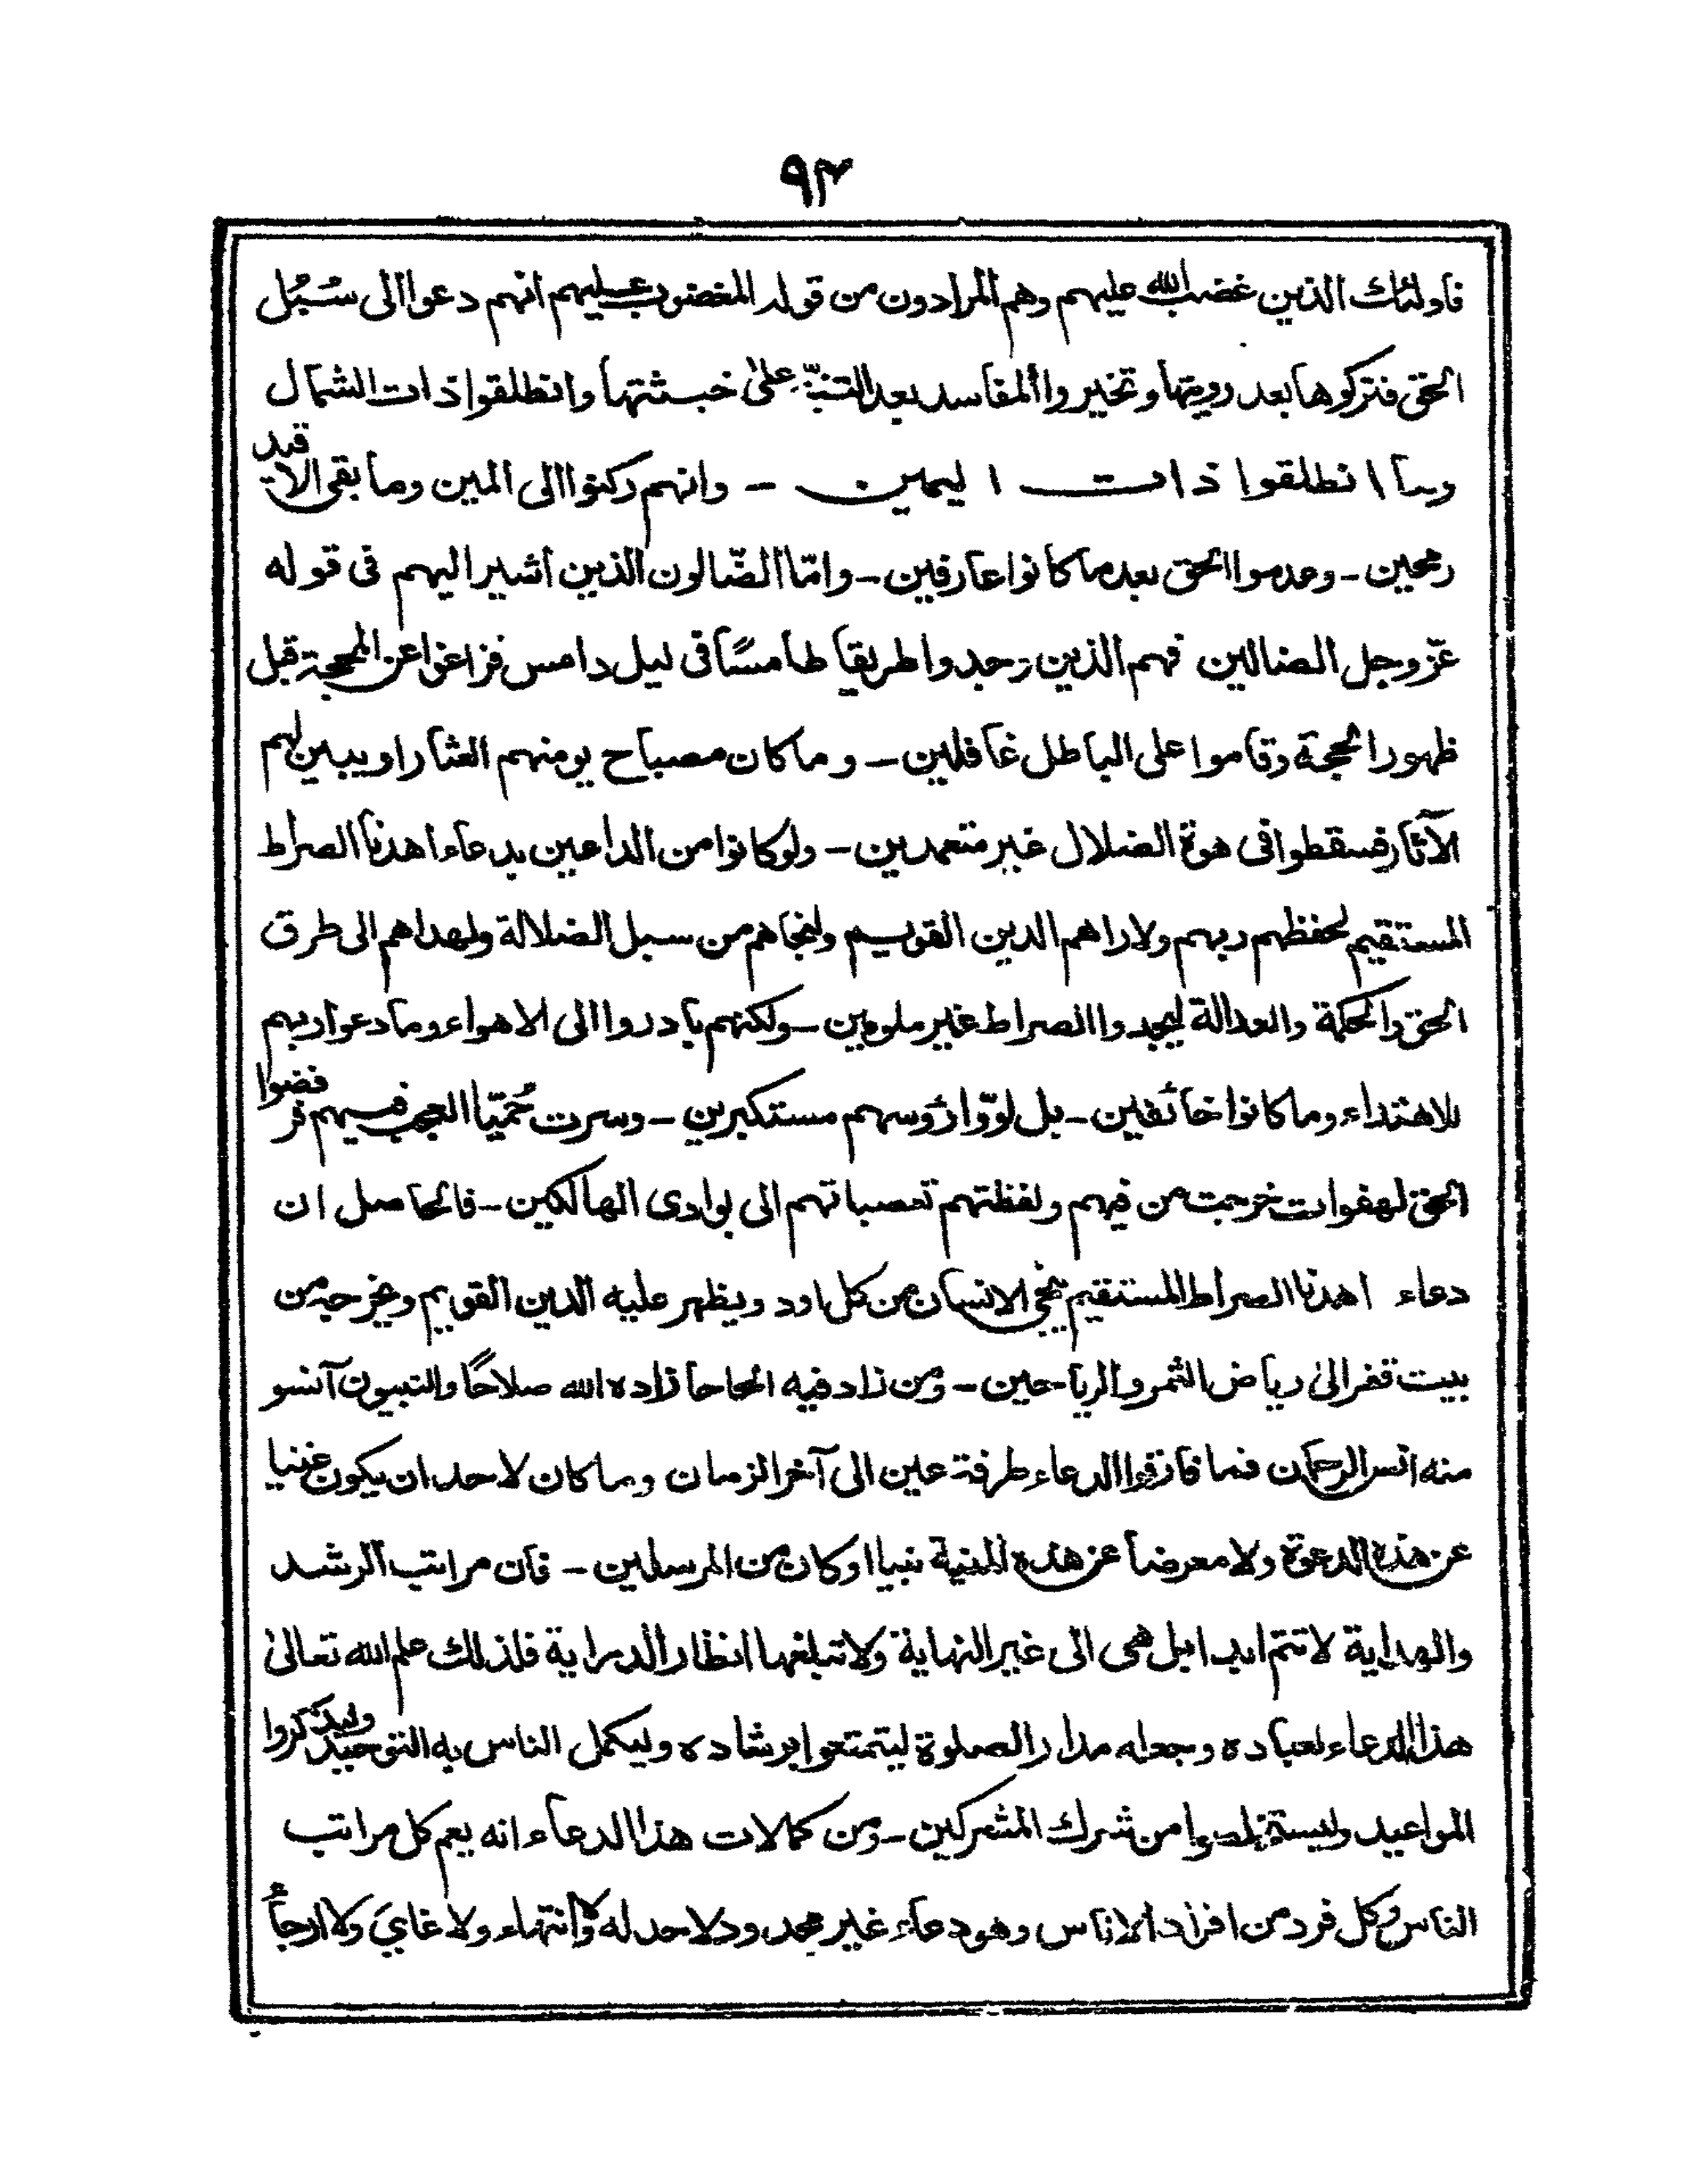 ۹۴
فاولئك الذين غضب الله عليهم وهم المرادون من قوله المغضوب عليهم انهم دعوا الى سُبُل
الحق فتركوها بعد رويتها وتخيروا المفاسد بعد التنبّه على خبثتها وانطلقوا ذات الشمال
وما انطلقوا ذات اليمين - وانهم ركنوا الى المين وما بقى الا قيد
رمحين - وعدموا الحق بعد ما كانوا عارفين - وامّا الضّالون الذين اشير اليهم فى قوله
عزّ وجل الضالين فهم الذين وجدوا طريقا طامسًا فى ليل دامس فزاغوا عن المحجة قبل
ظهور الحجة وقاموا على الباطل غافلين - وما كان مصباح يومنهم العثار او يبين لهم
الآثار فسقطوا فى هوة الضلال غير متعمدين - ولو كانوا من الداعين بدعاء اهدنا الصراط
المستقيم لحفظهم ربهم ولاراهم الدين القويم ولنجاهم من سبل الضلالة ولهداهم الى طرق
الحق والحكمة والعدالة ليجدوا الصراط غير ملومين - ولكنهم بادروا الى الاهواء وما دعوا ربهم
للاهتداء وما كانوا خائفين - بل لوّوا رؤسهم مستكبرين - وسرت حُمَيّا العجب فيهم فرفضوا
الحق لهفوات خرجت من فيهم ولفظتهم تعصباتهم الى بوادى الهالكين - فالحاصل ان
دعاء اهدنا الصراط المستقيم ينجى الانسان من كل اود ويظهر عليه الدين القويم ويخرجه من
بيت قفر الى رياض الثمر والرياحين - ومن زاد فيه الحاحا زاده الله صلاحًا والنبيون آنسو
منه انس الرحمان فما فارقوا الدعاء طرفة عين الى آخر الزمان وما كان لاحد ان يكون غنيا
عن هذه الدعوة ولا معرضا عن هذه المنية نبيا او كان من المرسلين - فان مراتب الرشد
والهداية لا تتم ابدا بل هى الى غير النهاية ولا تبلغها انظار الدراية فلذلك علم الله تعالىٰ
هذا الدعاء لعباده وجعله مدار الصلوة ليتمتعوا برشاده وليكمل الناس به التوحيد وليذكروا
المواعيد وليستخلصوا من شرك المشركين - ومن كمالات هذا الدعاء انه يعم كل مراتب
الناس وكل فرد من افراد الاناس وهو دعاء غير محدود لا حد له ولا انتهاء ولا غاى ولا ارجاء